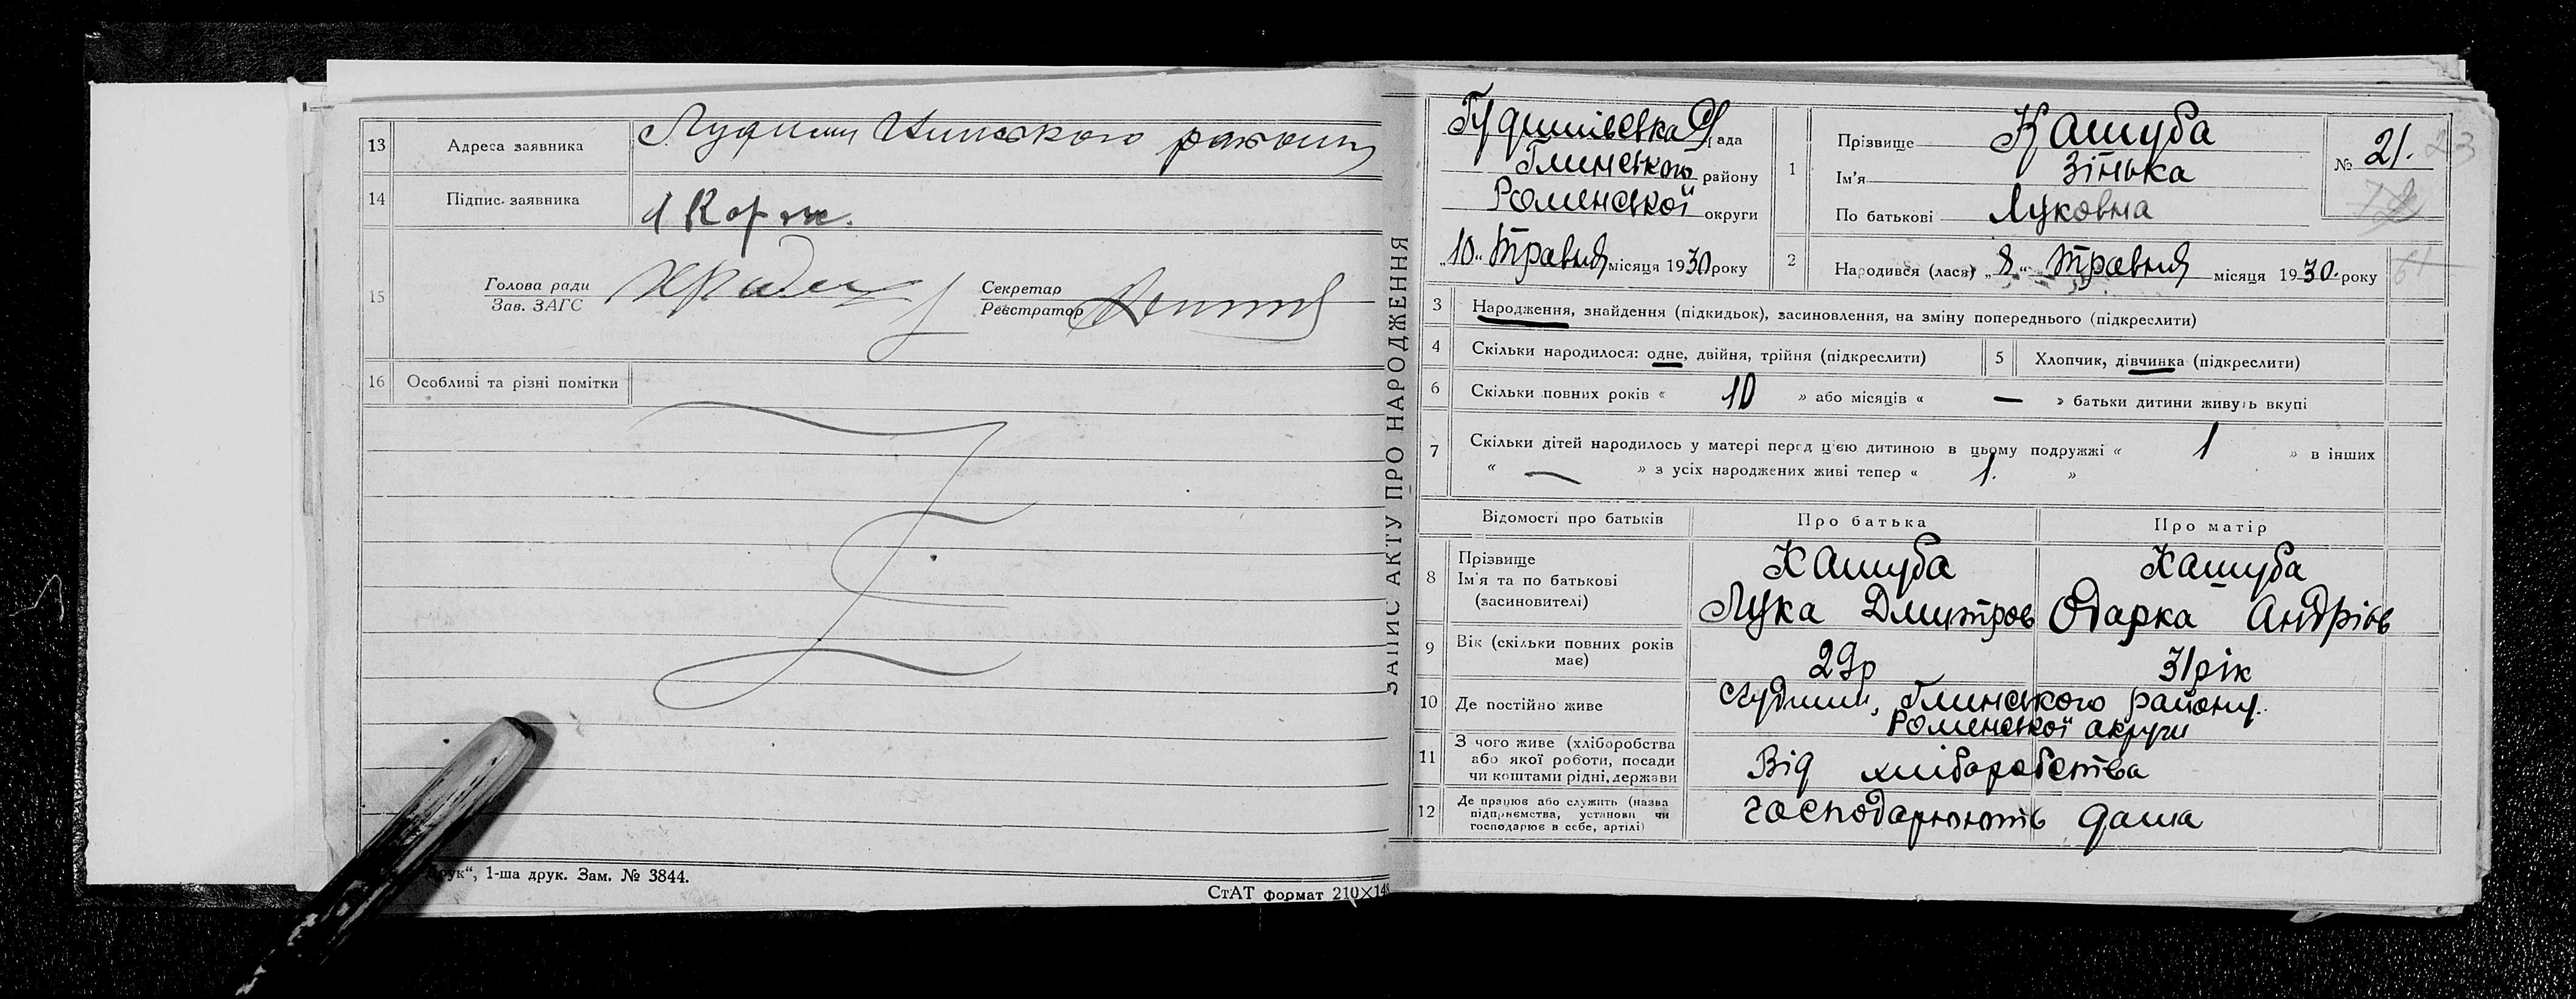 13 Адреса заявника району
14 Підпис заявника Корж.
15 Голова ради
Зав. ЗАГС
Секретар
Реєстратор
16 Особливі та різні помітки
друк“, 1-ша друк. Зам. № 3844.
СтАТ формат 210×148
ЗАПИС АКТУ ПРО НАРОДЖЕННЯ
рада
Глинського району
Роменської округи
„10“ Травня місяця 1930 року
1 Прізвище Кашуба
Ім'я Зінька
По батькові Луковна
№ 21. 23
2 Народився (лася) „8“ Травня місяця 1930 року
3 Народження, знайдення (підкидьок), засиновлення, на зміну попереднього (підкреслити)
4 Скільки народилося: одне, двійня, трійня (підкреслити)
5 Хлопчик, дівчинка (підкреслити)
6 Скільки повних років « 10 » або місяців « — » батьки дитини живуть вкупі
7 Скільки дітей народилось у матері перед цією дитиною в цьому подружжі « 1 » в інших
« — » з усіх народжених живі тепер « 1. »
Відомості про батьків Про батька Про матір
8 Прізвище Кашуба Кашуба
Ім'я та по батькові
(засиновителі) Лука Дмитров Одарка Андрієв
9 Вік (скільки повних років
має) 29р 31рік
10 Де постійно живе Глинського району.
Роменської округи
11 З чого живе (хліборобства
або якої роботи, посади
чи коштами рідні, держави Від хліборобства
12 Де працює або служить (назва
підприємства, установи чи
господарює в себе, артілі) господарюють дома